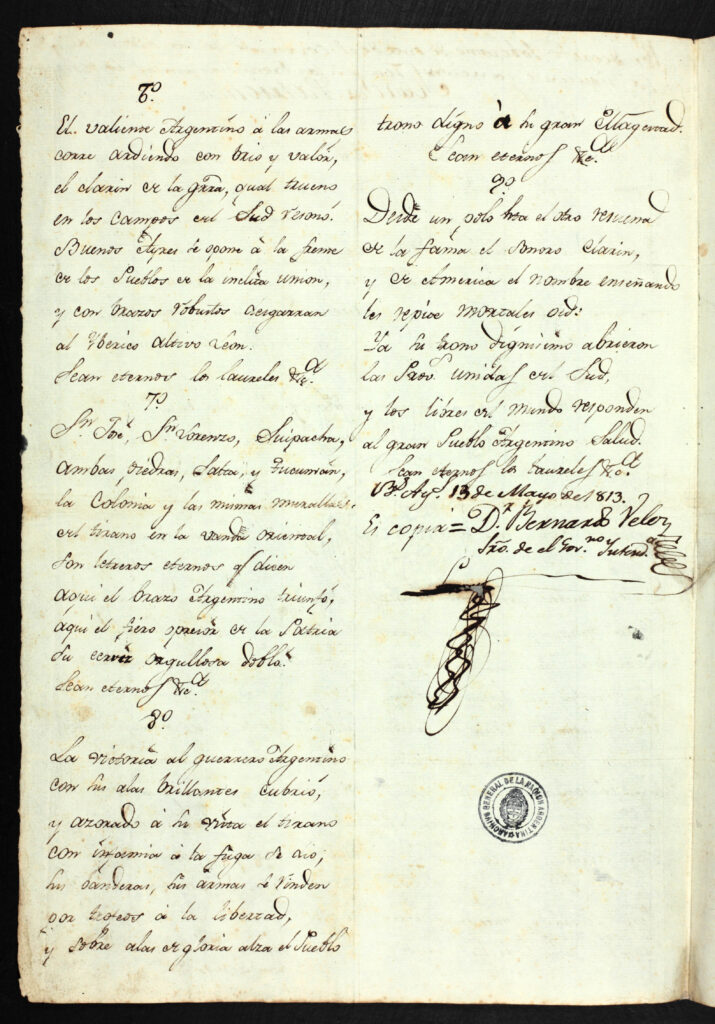 6.º
El valiente Argentino à las armas
corre ardiendo con brio y valor,
el clarin de la grra, qual trueno
en los campos del Sud resonó.
Buenos Ayres se opone à la frente
de los Pueblos de la inclita union,
y con brazos robustos desgarran
al Yberico altivo Leon.
Sean eternos los laureles &c.ª
7.º
Sn. José, Sn. Lorenzo, Suipacha,
ambas piedras, Salta, y Tucumàn,
la Colonia y las mismas murallas
del tirano en la vanda oriental,
son letreros eternos q.e dicen
aqui el brazo Argentino triunfó,
aqui el fiero opresor de la Patria
su cerviz orgullosa dobló.
Sean eternos &c.ª
8.º
La victoria al guerrero Argentino
con sus alas brillantes cubrió,
y azorado à su vista el tirano
con infamia à la fuga se dio;
sus banderas, sus armas se rinden
por trofeos à la libertad,
y sobre alas de gloria alza el Pueblo
trono digno à su gran Magestad.
Sean eternos &c.ª
9.º
Desde un polo hta el otro resuena
de la fama el sonoro clarin,
y de America el nombre enseñando
les repite mortales oid:
Ya su trono dignisimo abrieron
las Prov.s unidas del Sud,
y los libres del mundo responden
al gran Pueblo Argentino Salud.
Sean eternos los laureles &c.ª
B.s Ay.s 13 de Mayo de 1813.
Es copia = D.r Bernardo Velez
Srio. de el Gov.no Intend.a
ARCHIVO GENERAL DE LA NACION ARGENTINA